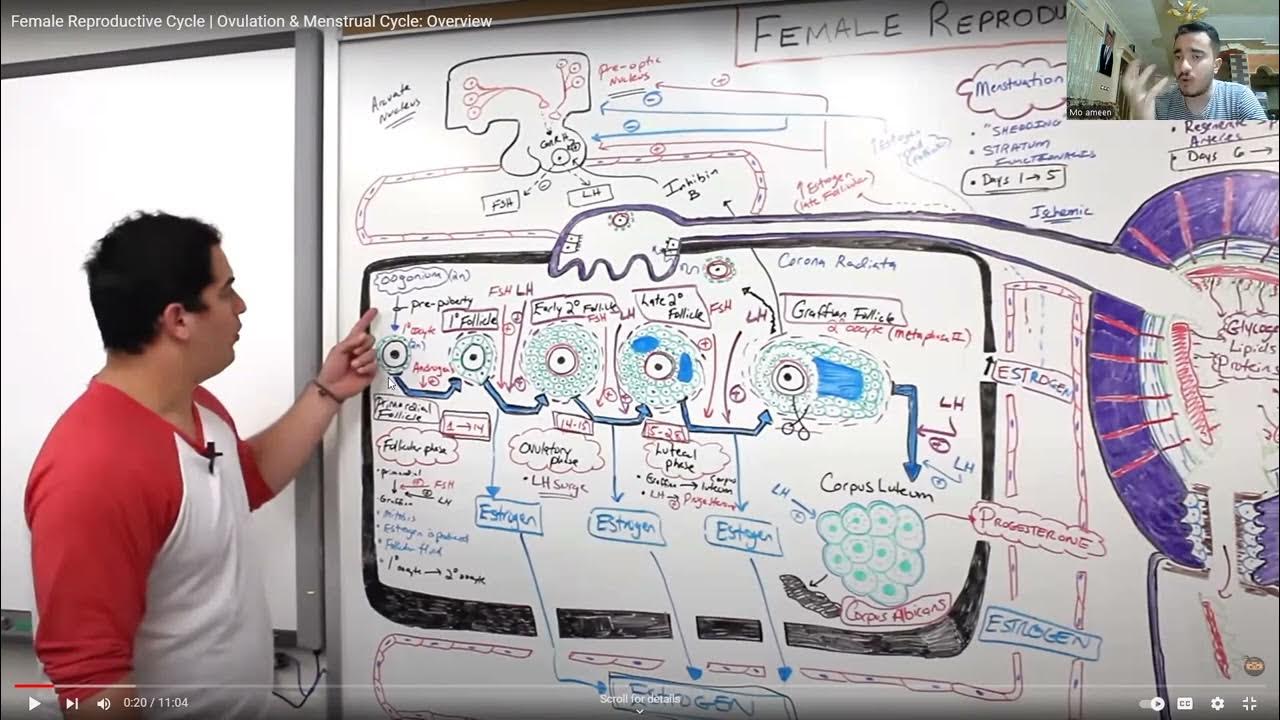 Female Reproductive Cycle | Ovulation & Menstrual Cycle: Overview
Mo ameen
FEMALE REPRODU
Pre-optic
Nucleus
Arcuate
Nucleus
GnRH
FSH
LH
Inhibin
B
↑Estrogen
(late Follicular)
Menstruation
• "SHEDDING"
• STRATUM
FUNCTIONALIS
• Days 1 → 5
Ischemic
Regenerate
Arteries
• Days 6 →
Corona Radiata
Oogonium (2n)
pre-puberty
1° Oocyte
(2n)
1° Follicle
FSH LH
Early 2° Follicle
FSH LH
Late 2°
Follicle
FSH
LH
Graffian Follicle
2° oocyte (metaphase II)
Androgens
Primordial
Follicle
1 → 14
14-15
15-28
Follicular phase
Ovulatory
phase
• LH Surge
Luteal
phase
• Graffian → Corpus
luteum
• LH → Progesterone
• primordial
FSH
Graffian
LH
• Mitosis
• Estrogen is produced
• Follicular fluid
• 1° oocyte → 2° oocyte
Estrogen
Estrogen
Estrogen
LH
LH
LH
Corpus Luteum
PROGESTERONE
Corpus Albicans
ESTROGEN
ESTROGEN
Glycogen
Lipids
Proteins
0:20 / 11:04
Scroll for details
CC